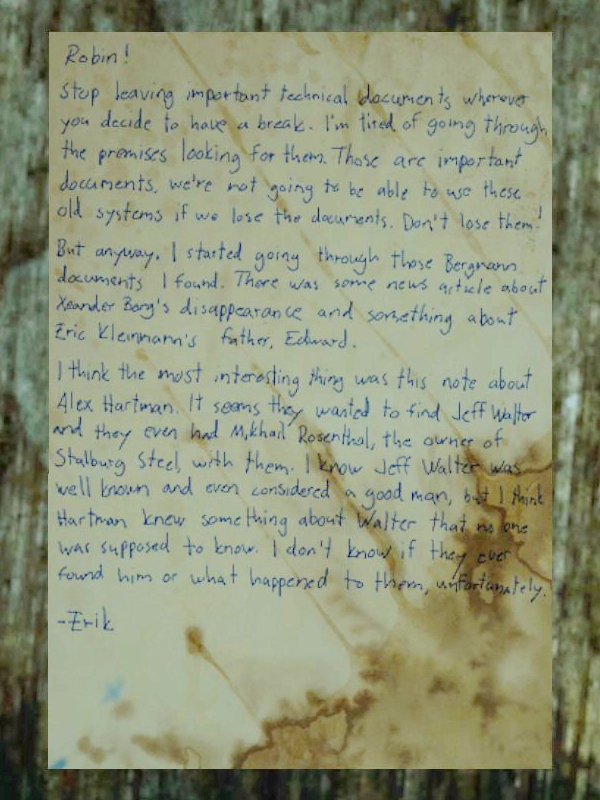 Robin!
Stop leaving important technical documents wherever
you decide to have a break. I'm tired of going through
the premises looking for them. Those are important
documents, we're not going to be able to use these
old systems if we lose the documents. Don't lose them!
But anyway. I started going through those Bergmann
documents I found. There was some news article about
Xeander Borg's disappearance and something about
Eric Kleinmann's father, Edward.
I think the most interesting thing was this note about
Alex Hartman. It seems they wanted to find Jeff Walter
and they even had Mikhail Rosenthal, the owner of
Stalburg Steel, with them. I know Jeff Walter was
well known and even considered a good man, but I think
Hartman knew something about Walter that no one
was supposed to know. I don't know if they ever
found him or what happened to them, unfortunately.
-Erik